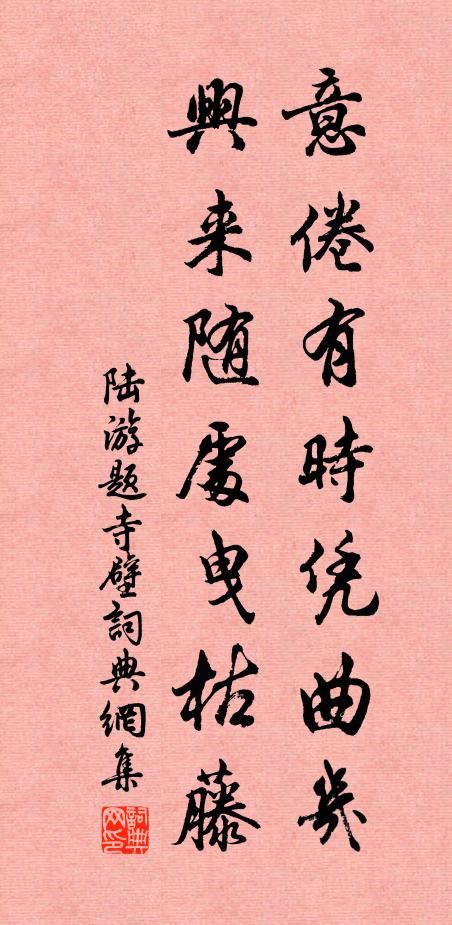 意倦有時凭曲几
興来随處曳枯藤
陆游题寺壁詞典網集
詞典网印